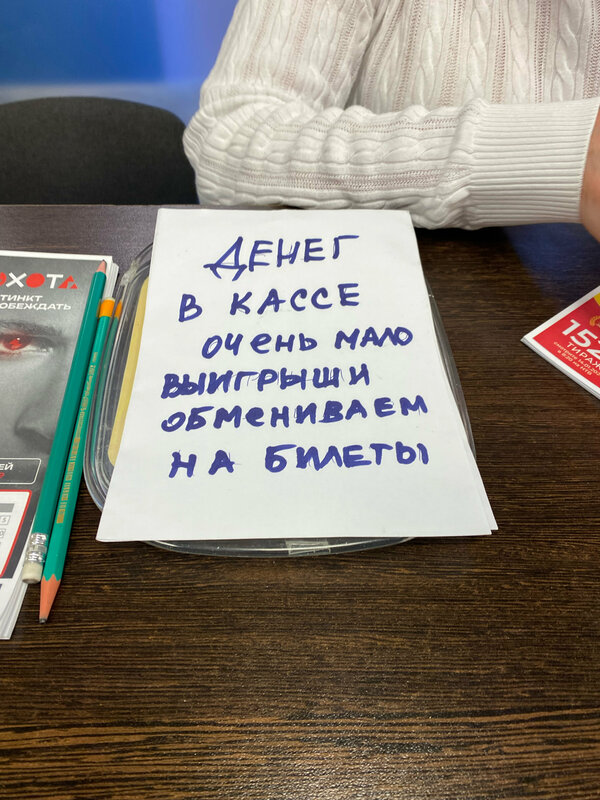 ДЕНЕГ
В КАССЕ
ОЧЕНЬ МАЛО
ВЫИГРЫШИ
ОБМЕНИВАЕМ
НА БИЛЕТЫ
ОХОТА
ОБЕЖДАТЬ
ТИРАЖ